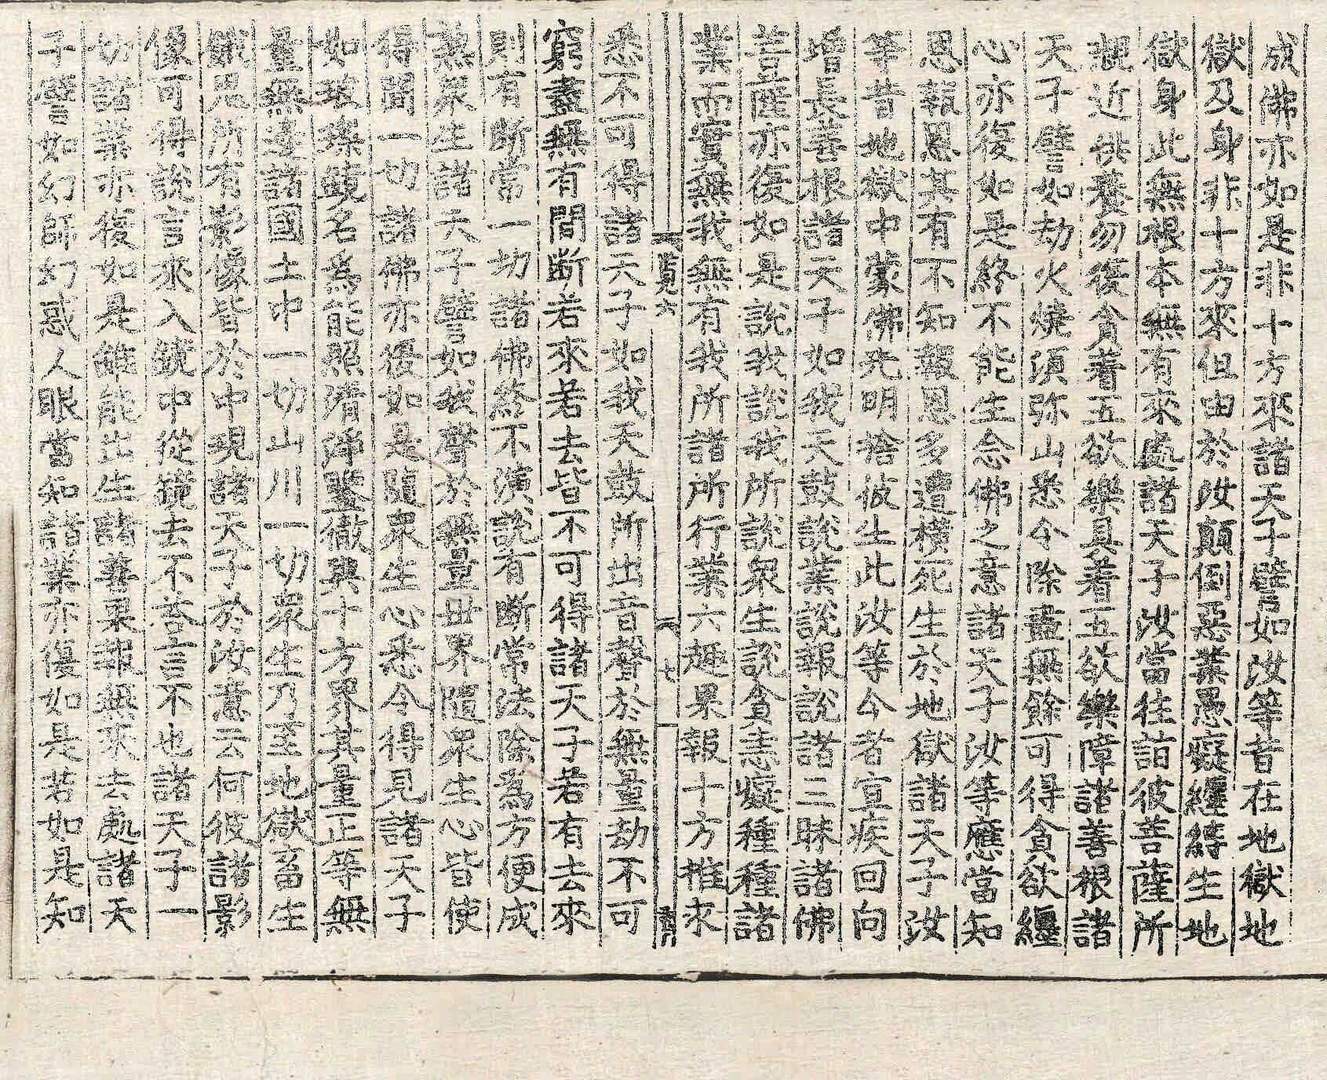 成佛亦如是非十方來諸天子譬如汝等昔在地獄地
獄及身非十方來但由於汝顛倒惡業愚癡纏縛生地
獄身此無根本無有來處諸天子汝當往詣彼菩薩所
親近供養勿復貪著五欲樂具著五欲樂障諸善根諸
天子譬如劫火燒須弥山悉令除盡無餘可得貪欲纏
心亦復如是終不能生念佛之意諸天子汝等應當知
恩報恩其有不知報恩多遭橫死生於地獄諸天子汝
等昔地獄中蒙佛光明捨彼生此汝等今者宜疾回向
增長善根諸天子如我天鼓說業說報說諸三昧諸佛
菩薩亦復如是說我說我所說衆生說貪恚癡種種諸
業而實無我無有我所諸所行業六趣果報十方推求
覓六 七
悉不可得諸天子如我天鼓所出音聲於無量劫不可
窮盡無有間斷若來若去皆不可得諸天子若有去來
則有斷常一切諸佛終不演說有斷常法除為方便成
熟衆生諸天子譬如我聲於無量世界隨衆生心皆使
得聞一切諸佛亦復如是隨衆生心悉令得見諸天子
如玻瓈鏡名為能照清淨鑒徹與十方界其量正等無
量無邊諸國土中一切山川一切衆生乃至地獄畜生
餓鬼所有影像皆於中現諸天子於汝意云何彼諸影
像可得說言來入鏡中從鏡去不荅言不也諸天子一
切諸業亦復如是雖能出生諸善果報無來去處諸天
子譬如幻師幻惑人眼當知諸業亦復如是若如是知